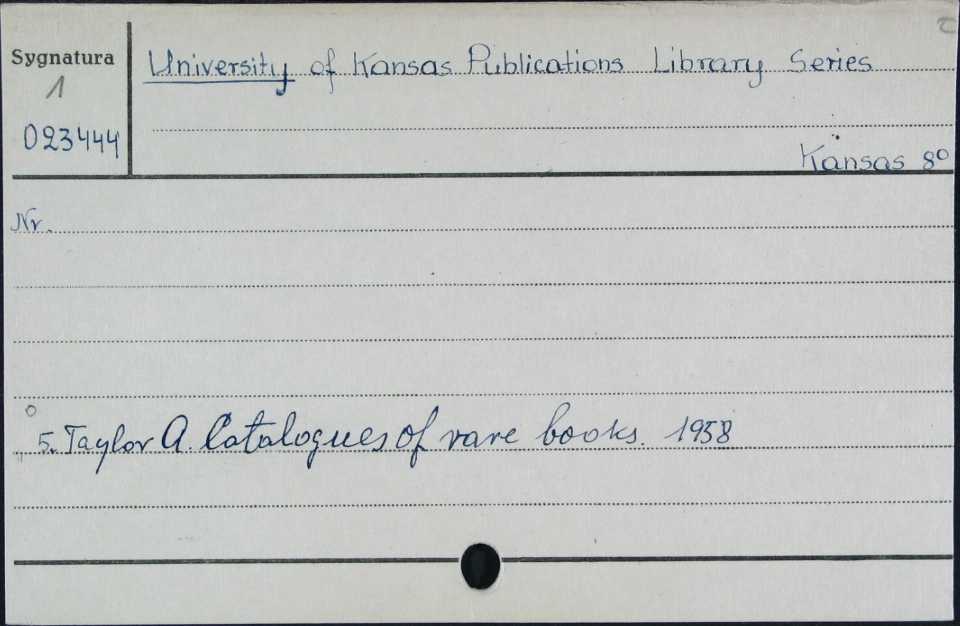 Sygnatura
1
023444
University of Kansas Publications Library Series
Kansas 8º
Nr.
5. Taylor A. Catalogues of rare books. 1958